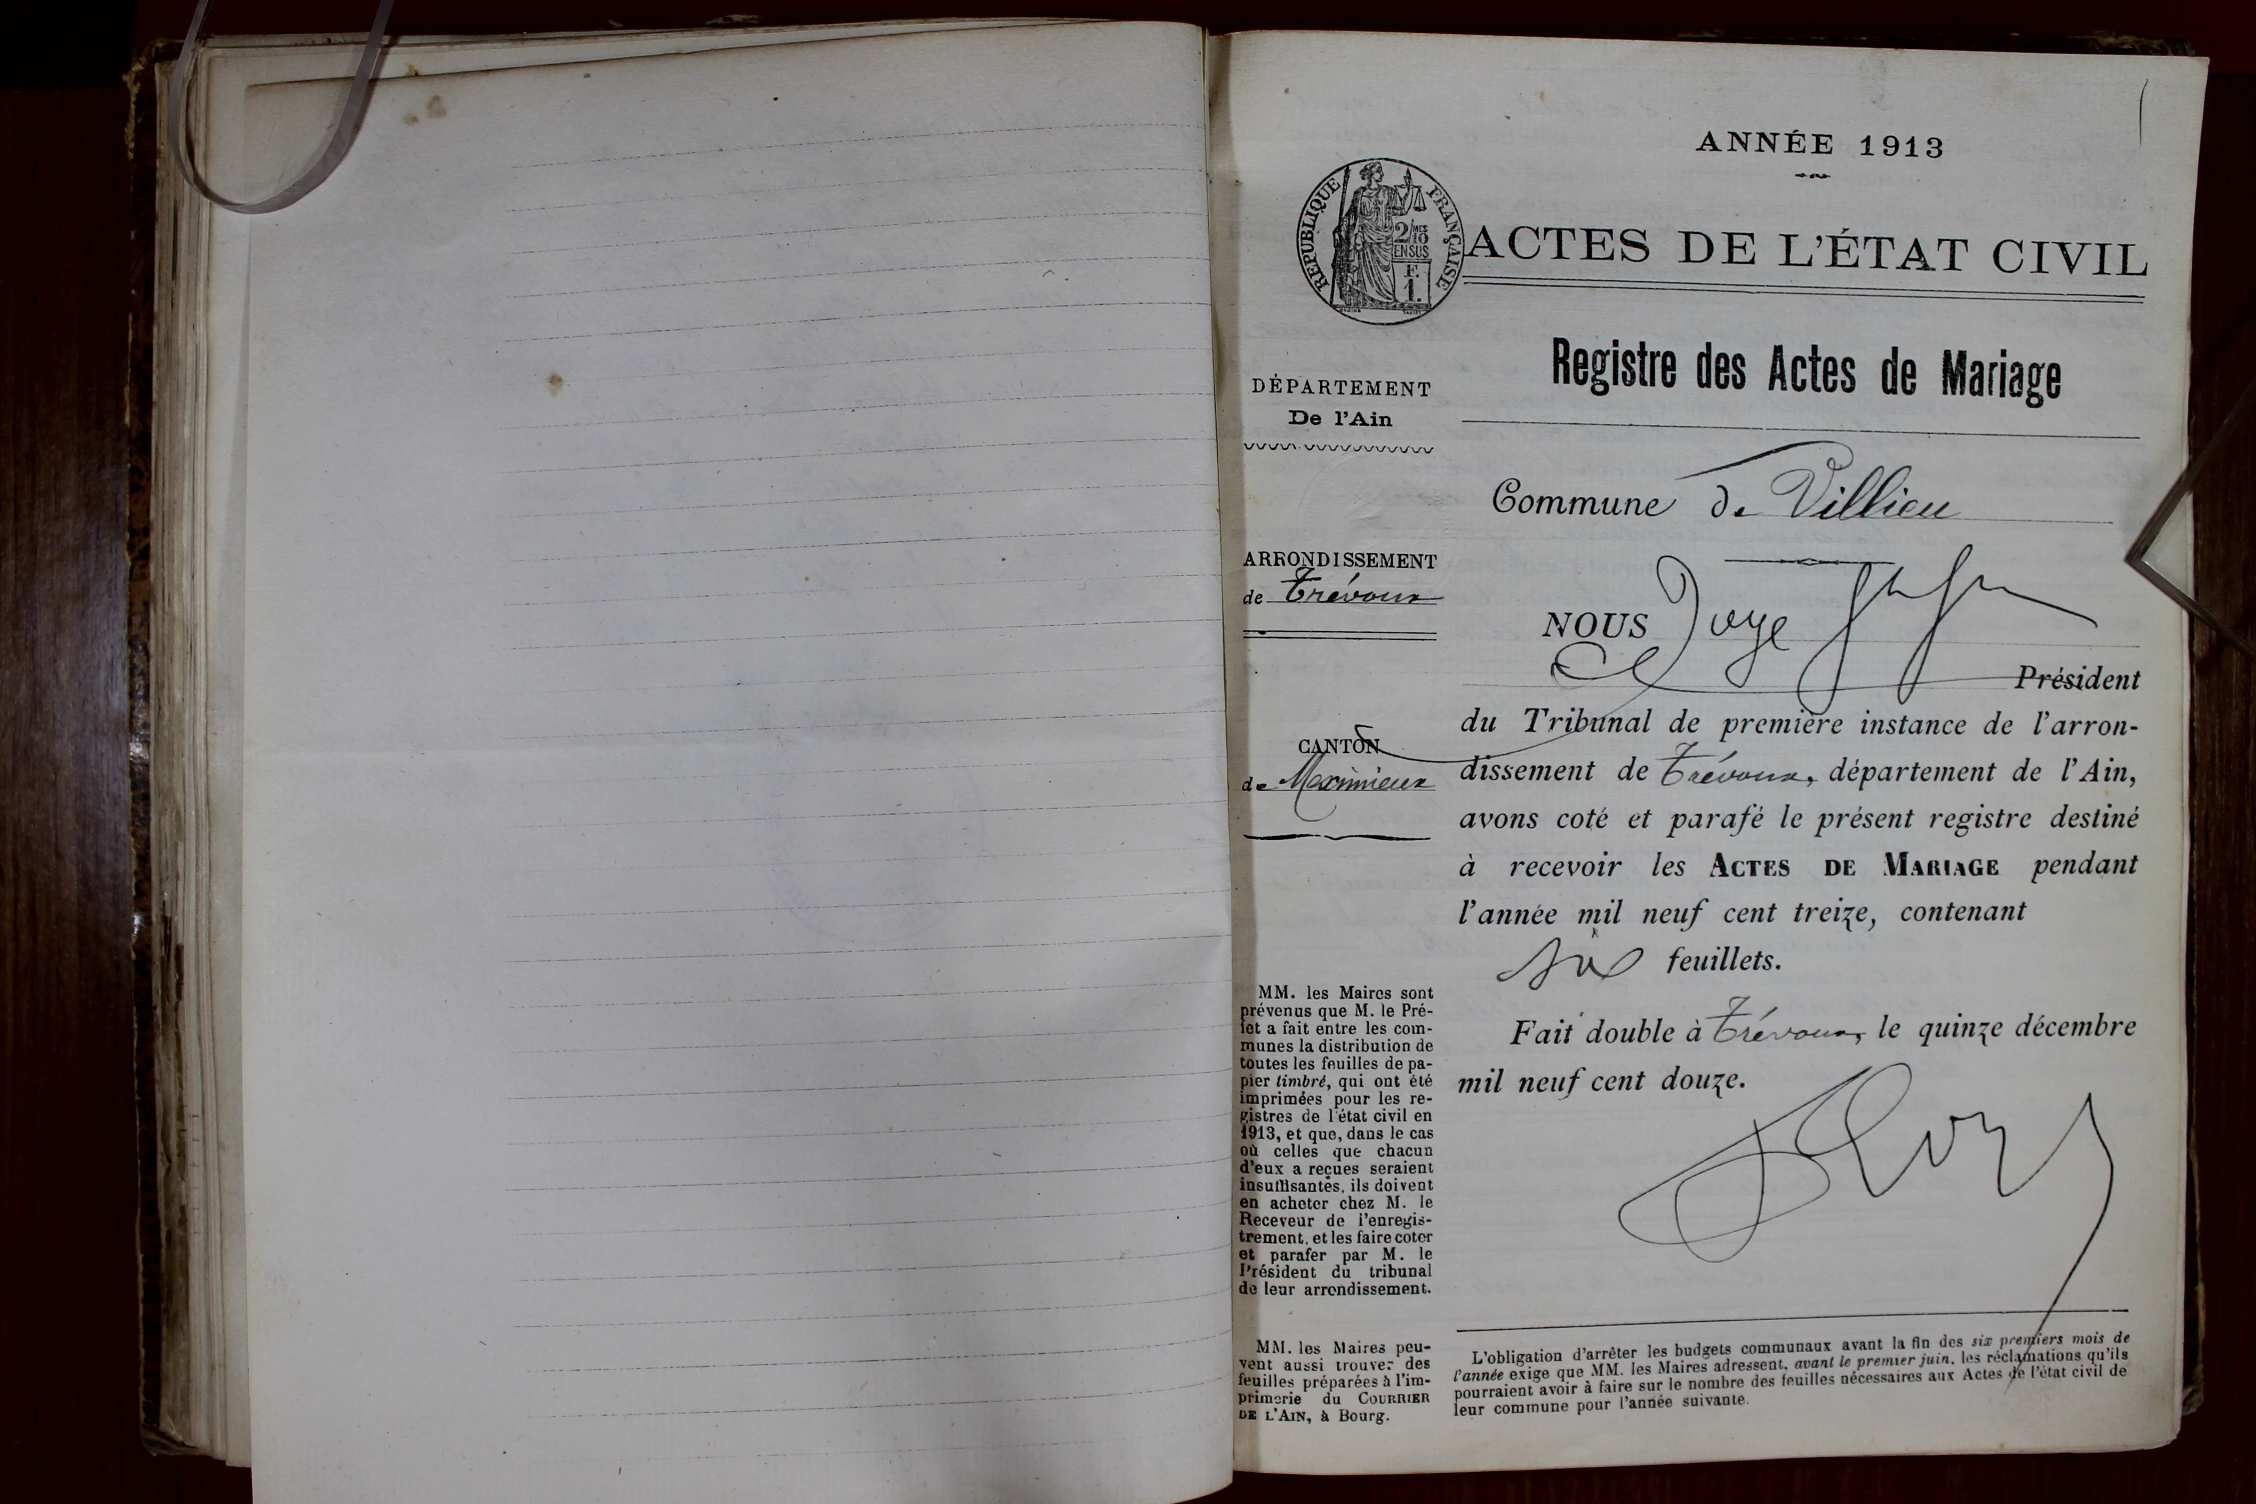 ANNÉE 1913
RÉPUBLIQUE FRANÇAISE
2/10 MES
EN SUS
F.
1.
ACTES DE L'ÉTAT CIVIL
Registre des Actes de Mariage
DÉPARTEMENT
De l'Ain
Commune de Villieu
ARRONDISSEMENT
de Trévoux
NOUS
Président
CANTON
de Meximieux
du Tribunal de première instance de l'arron-
dissement de Trévoux, département de l'Ain,
avons coté et parafé le présent registre destiné
à recevoir les ACTES DE MARIAGE pendant
l'année mil neuf cent treize, contenant
six feuillets.
Fait double à Trévoux, le quinze décembre
mil neuf cent douze.
MM. les Maires sont
prévenus que M. le Pré-
fet a fait entre les com-
munes la distribution de
toutes les feuilles de pa-
pier timbré, qui ont été
imprimées pour les re-
gistres de l'état civil en
1913, et que, dans le cas
où celles que chacun
d'eux a reçues seraient
insuffisantes, ils doivent
en acheter chez M. le
Receveur de l'enregis-
trement, et les faire coter
et parafer par M. le
Président du tribunal
de leur arrondissement.
MM. les Maires peu-
vent aussi trouver des
feuilles préparées à l'im-
primerie du COURRIER
DE L'AIN, à Bourg.
L'obligation d'arrêter les budgets communaux avant la fin des six premiers mois de
l'année exige que MM. les Maires adressent, avant le premier juin, les réclamations qu'ils
pourraient avoir à faire sur le nombre des feuilles nécessaires aux Actes de l'état civil de
leur commune pour l'année suivante.